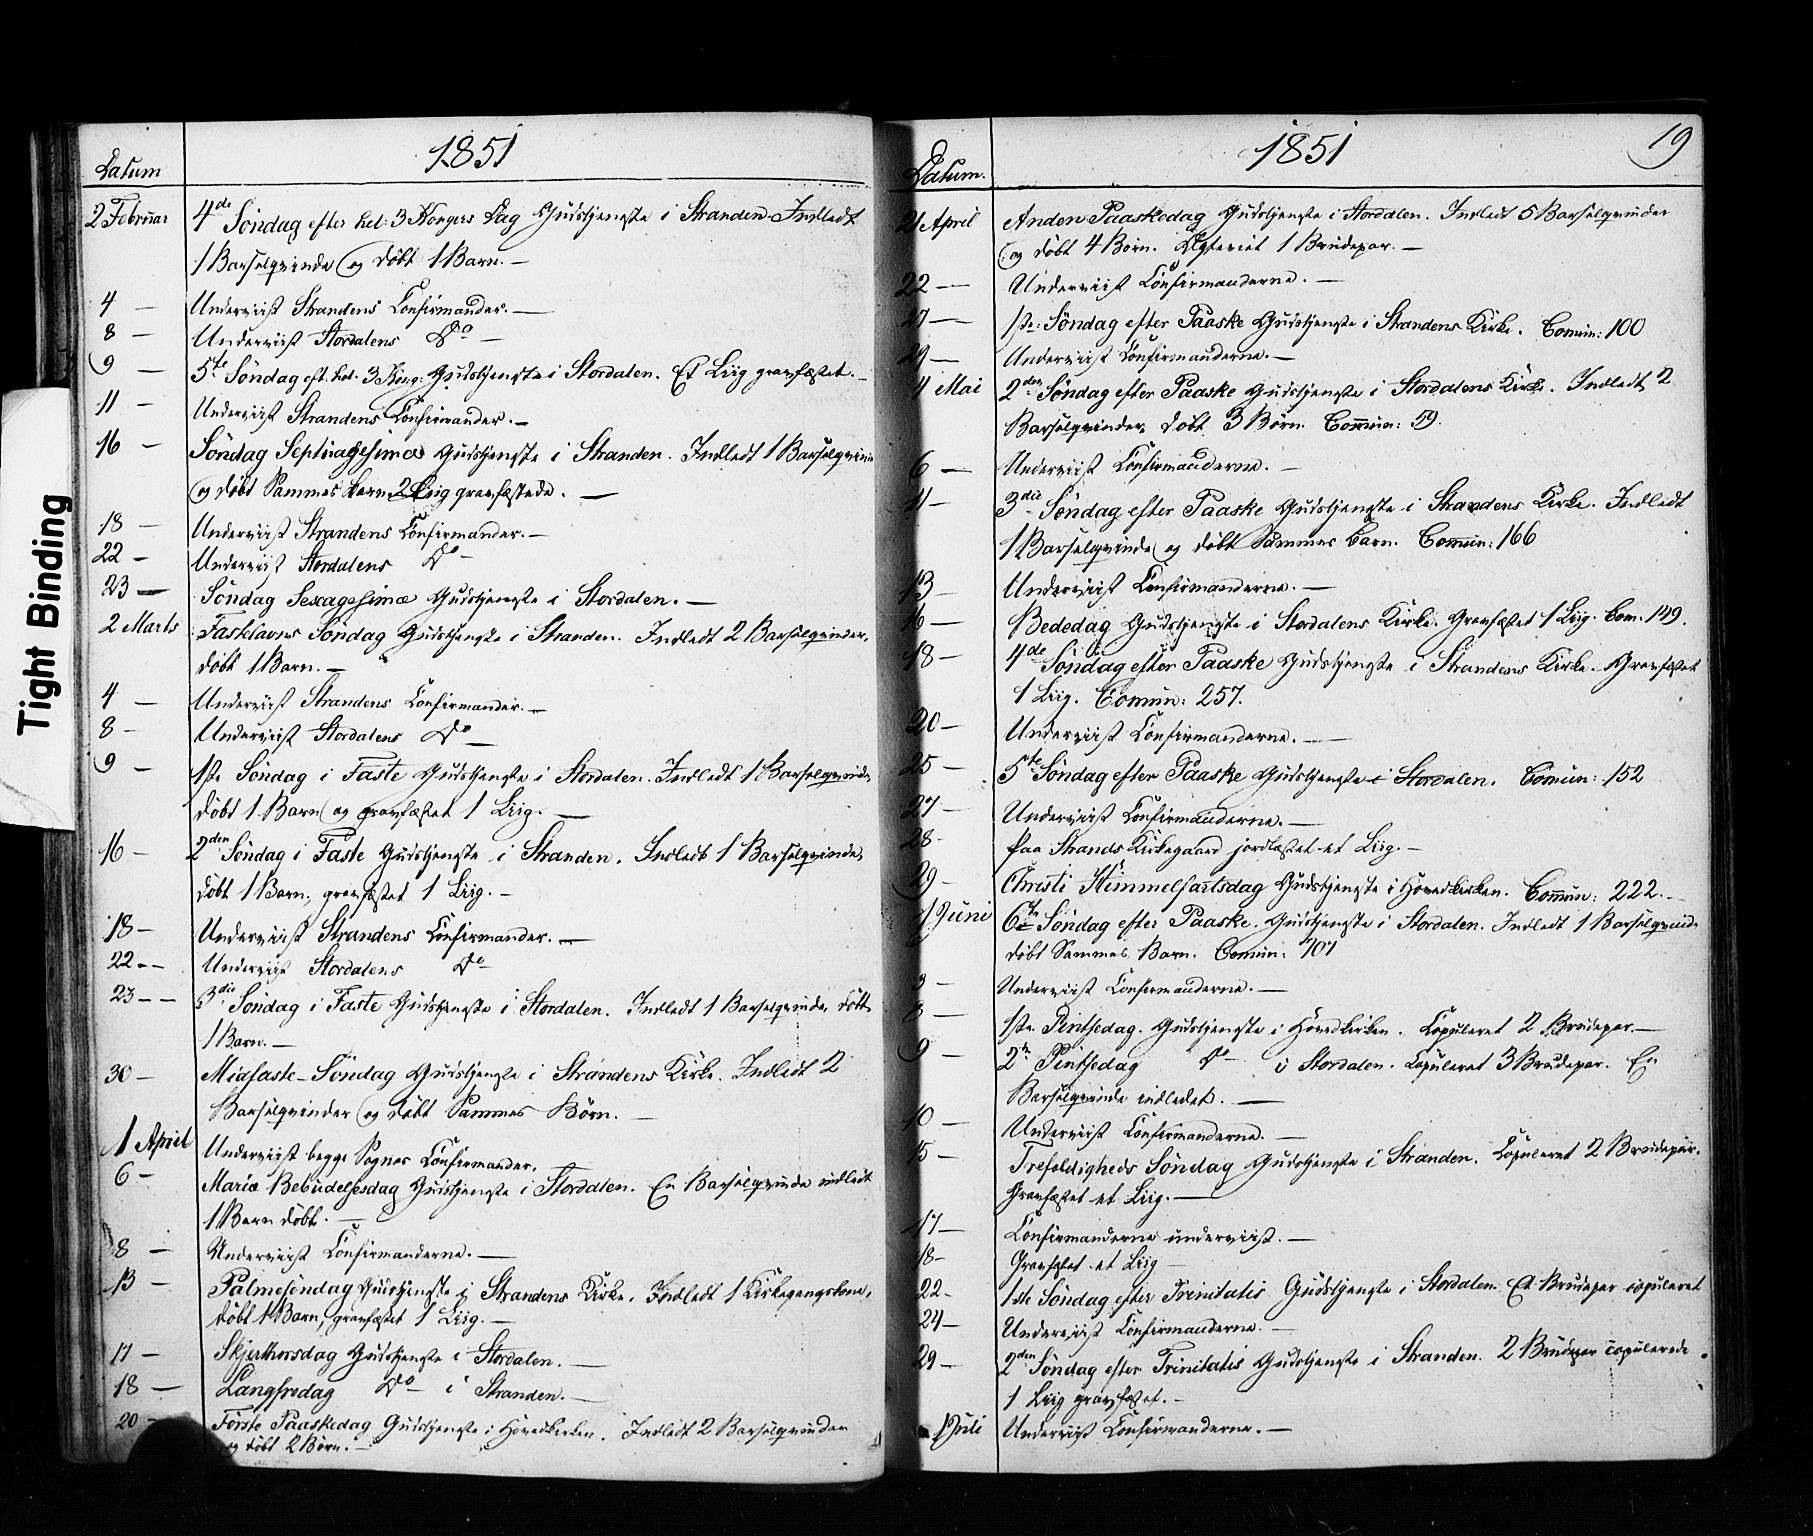 1851
Datum
2 Februar 4de Söndag efter hel: 3 Kongers Dag Gudstjeneste i Stranden. Indledt
1 Barselqvinde og döbt 1 Barn. —
4 — Underviist Strandens Confirmander. —
8 — Underviist Stordalens Do —
9 — 5te Söndag eft. hel. 3 Kong: Gudstjeneste i Stordalen. Et Liig gravfæstet. —
11 — Underviist Strandens Confirmander. —
16 — Söndag Septuagesimæ Gudstjeneste i Stranden. Indledt 1 Barselqvinde
og döbt Sammes Barn. 2 Liig gravfæstede. —
18 — Underviist Strandens Confirmander. —
22 — Underviist Stordalens Do —
23 — Söndag Sexagesimæ Gudstjeneste i Stordalen. —
2 Marts Fastelavns Söndag Gudstjeneste i Stranden. Indledt 2 Barselqvinder,
döbt 1 Barn. —
4 — Underviist Strandens Confirmander. —
8 — Underviist Stordalens Do —
9 — 1ste Söndag i Faste Gudstjeneste i Stordalen. Indledt 1 Barselqvinde,
döbt 1 Barn og gravfæstet 1 Liig. —
16 — 2den Söndag i Faste Gudstjeneste i Stranden. Indledt 1 Barselqvinde,
döbt 1 Barn, gravfæstet 1 Liig. —
18 — Underviist Strandens Confirmander. —
22 — Underviist Stordalens Do
23 — 3die Söndag i Faste Gudstjeneste i Stordalen. Indledt 1 Barselqvinde, döbt
1 Barn. —
30 — Midfaste-Söndag Gudstjeneste i Strandens Kirke. Indledt 2
Barselqvinder og döbt Sammes Börn. —
1 April Underviist begge Sognes Confirmander.
6 — Mariæ Bebudelsesdag Gudstjeneste i Stordalen. En Barselqvinde indledt
1 Barn döbt. —
8 — Underviist Confirmanderne. —
13 — Palmesöndag Gudstjeneste i Strandens Kirke. Indledt 1 Kirkegangskone,
döbt 1 Barn, gravfæstet 1 Liig. —
17 — Skjerthorsdag Gudstjeneste i Stordalen. —
18 — Langfredag Do — i Stranden. —
20 — Förste Paaskedag Gudstjeneste i Hovedkirken. Indledt 2 Barselqvinder
og döbt 2 Börn. —
1851
19
Datum.
21 April Anden Paaskedag Gudstjeneste i Stordalen. Indledt 5 Barselqvinder
og döbt 4 Börn. Ægteviet 1 Brudepar. —
22 — Underviist Confirmanderne. —
27 — 1ste: Söndag efter Paaske Gudstjeneste i Strandens Kirke. Comun: 100
29 — Underviist Confirmanderne. —
4 Mai 2den Söndag efter Paaske Gudstjeneste i Stordalens Kirke. Indledt 2
Barselqvinder, döbt 3 Börn. Comun: 59.
6 — Underviist Confirmanderne. —
11 — 3die Söndag efter Paaske Gudstjeneste i Strandens Kirke. Indledt
1 Barselqvinde og döbt Sammes Barn. Comun: 166
13 — Underviist Confirmanderne. —
16 — Bededag Gudstjeneste i Stordalens Kirke. Gravfæstet 1 Liig. Com: 149.
18 — 4de Söndag efter Paaske Gudstjeneste i Strandens Kirke. Gravfæstet
1 Liig. Comun: 257.
20 — Underviist Confirmanderne. —
25 — 5te Söndag efter Paaske Gudstjeneste i Stordalen. Comun: 152
27 — Underviist Confirmanderne. —
28 — Paa Strands Kirkegaard jordfæstet et Liig. —
29 — Christi Himmelfartsdag Gudstjeneste i Hovedkirken. Comun: 222. —
1 Juni 6te Söndag efter Paaske. Gudstjeneste i Stordalen. Indledt 1 Barselqvinde
döbt Sammes Barn. Comun: 101
3 — Underviist Confirmanderne. —
8 — 1ste Pintsedag. Gudstjeneste i Hovedkirken. Copuleret 2 Brudepar. —
9 — 2de Pintsedag Do — i Stordalen. Copuleret 3 Brudepar. En
Barselqvinde indledet. —
10 — Underviist Confirmanderne. —
15 — Trefoldigheds Söndag Gudstjeneste i Stranden. Copuleret 2 Brudepar.
Gravfæstet et Liig. —
17 — Confirmanderne underviist. —
18 — Gravfæstet et Liig —
22 — 1ste Söndag efter Trinitatis Gudstjeneste i Stordalen. Et Brudepar copuleret
24 — Underviist Confirmanderne. —
29 — 2den Söndag efter Trinitatis Gudstjeneste i Stranden. 2 Brudepar copulerede.
1 Liig gravfæstet. —
1 Juli Underviist Confirmanderne. —
Tight Binding